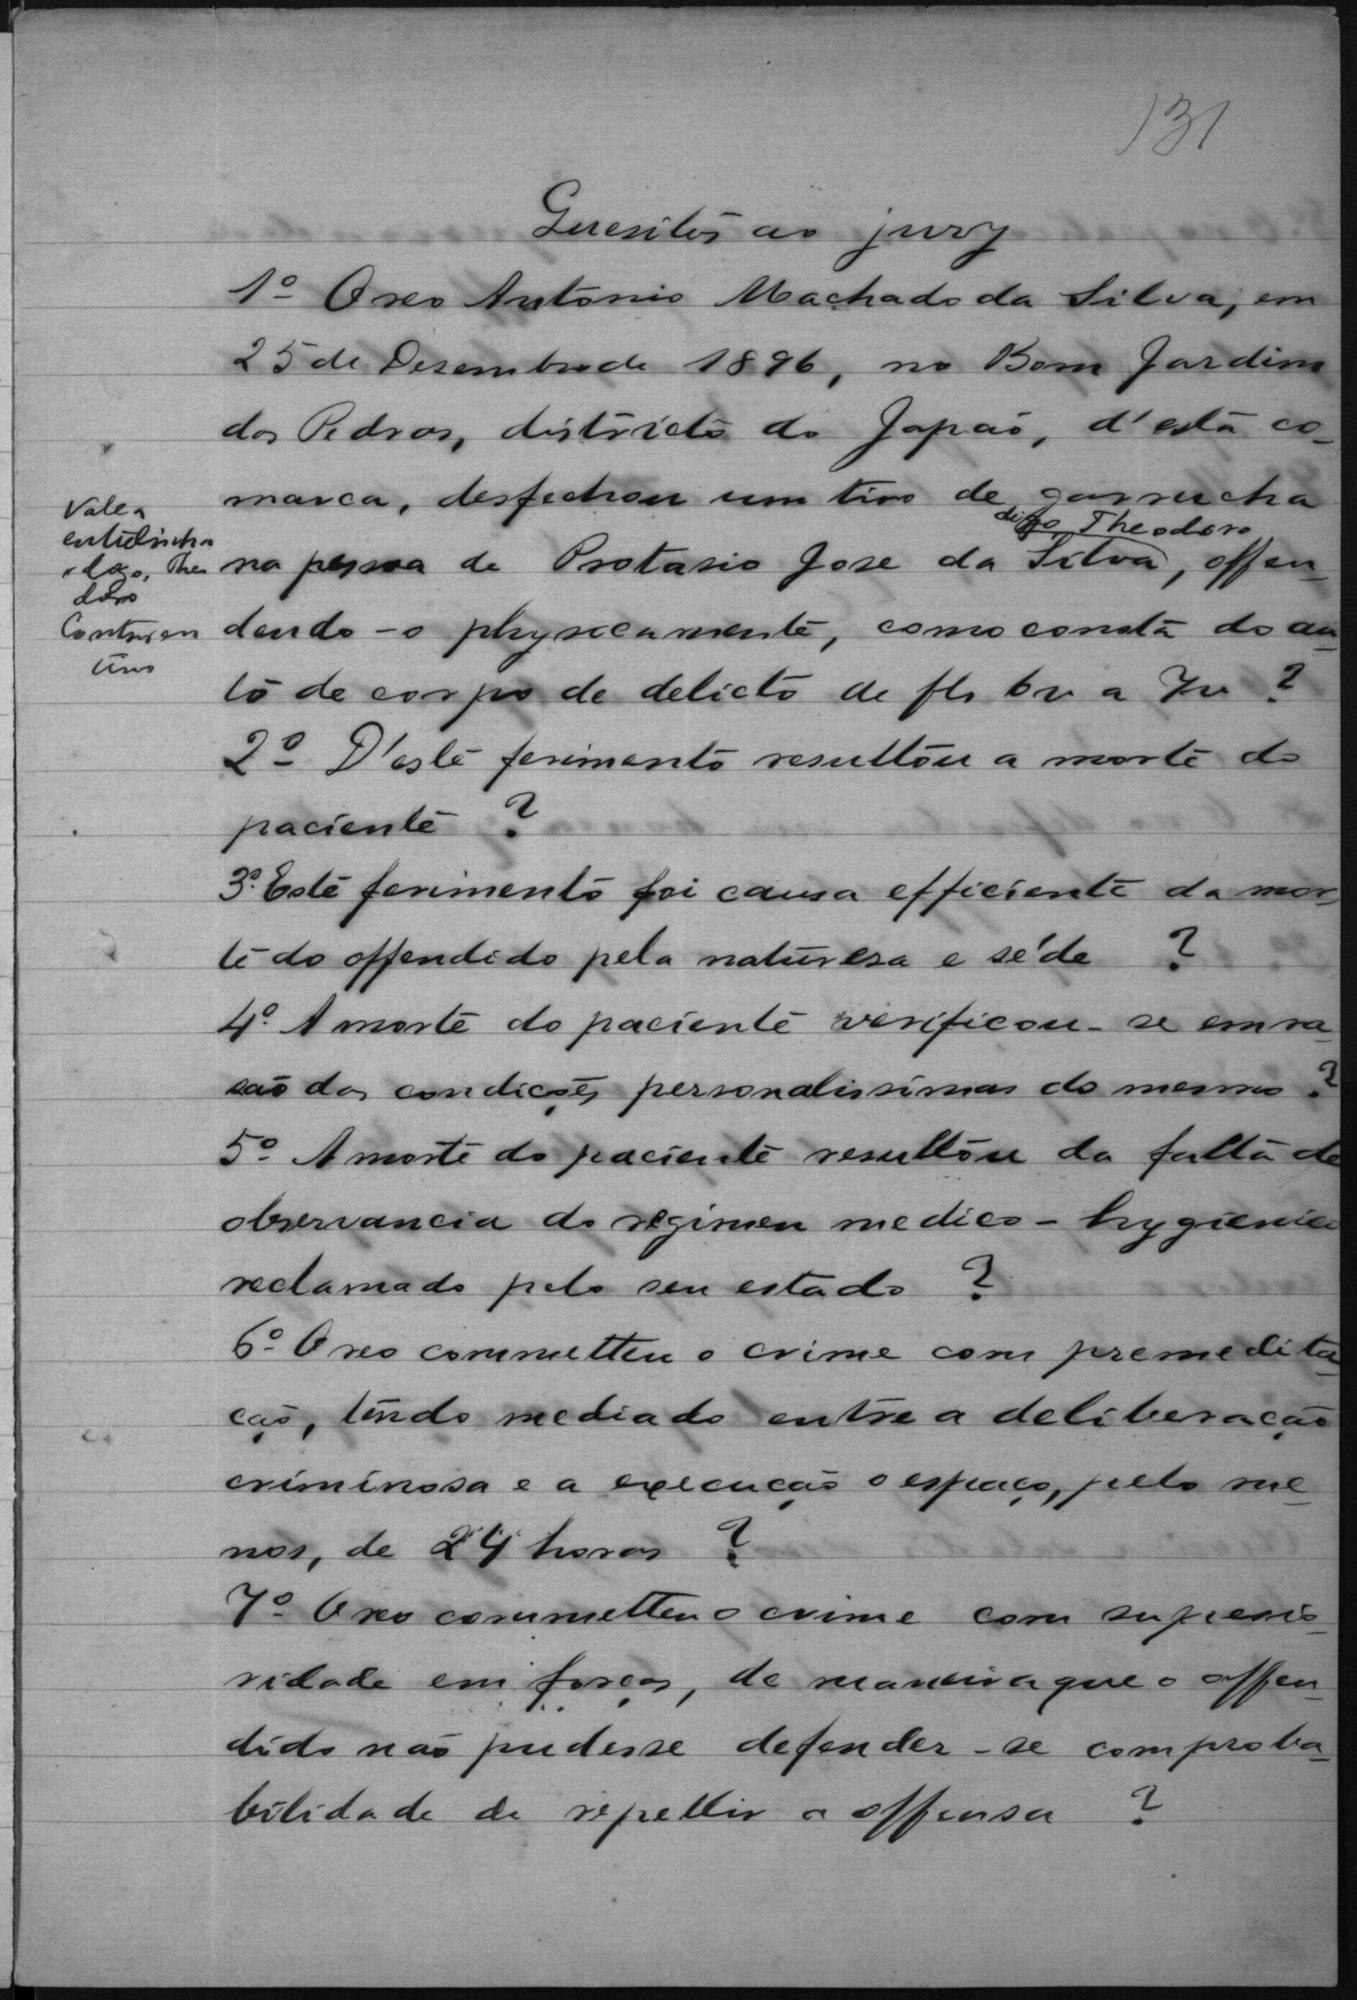 131
Quesitos ao jury
1º O reo Antonio Machado da Silva, em
25 de Desembro de 1896, no Bom Jardim
dos Pedros, districto do Japão, d'esta co-
marca, desfechou um tiro de garrucha
digo Theodoro
na pessoa de Protasio Jose da Silva, offen-
dendo-o physicamente, como consta do au-
to de corpo de delicto de fls 6v a 7v ?
2º D'este ferimento resultou a morte do
paciente ?
3º Este ferimento foi causa efficiente da mor-
te do offendido pela naturesa e séde ?
4º A morte do paciente verificou-se em ra-
são das condições personalissimas do mesmo ?
5º A morte do paciente resultou da falta de
observancia do regimen medico-hygienico
reclamado pelo seu estado ?
6º O reo commetteu o crime com premedita-
ção, tendo mediado entre a deliberação
criminosa e a execução o espaço, pelo me-
nos, de 24 horas ?
7º O reo commetteu o crime com superio-
ridade em forças, de maneira que o offen-
dido não pudesse defender-se com proba-
bilidade de repellir a offensa ?
Vale a
entrelinha
digo, Theo
doro